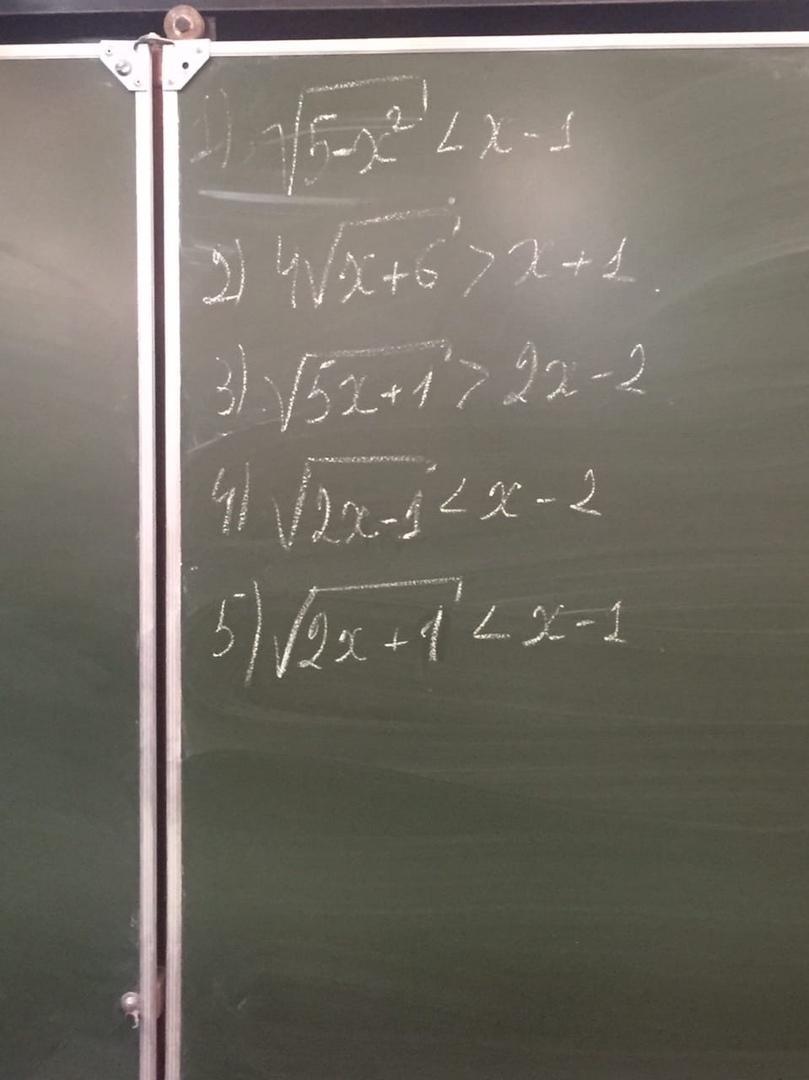 1) √5-x² < x-1
2) 4√x+6 > x+1.
3) √5x+1 > 2x-2
4) √2x-1 < x-2
5) √2x+1 < x-1